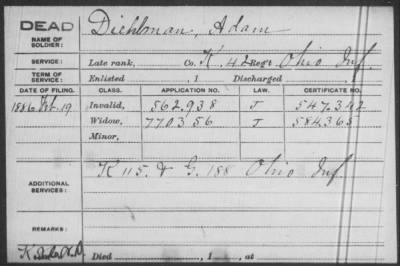 DEAD
NAME OF SOLDIER: Dichlman, Adam
SERVICE: Late rank, Co. K. 42 Reg't Ohio Inf.
TERM OF SERVICE: Enlisted , 1 Discharged , 1
DATE OF FILING. CLASS. APPLICATION NO. LAW. CERTIFICATE NO.
1886 Feb. 19 Invalid, 562.938 J 547.342
Widow, 770356 J 584.365
Minor,
ADDITIONAL SERVICES: K 115. & G. 188 Ohio Inf
REMARKS:
Died , 1 , at